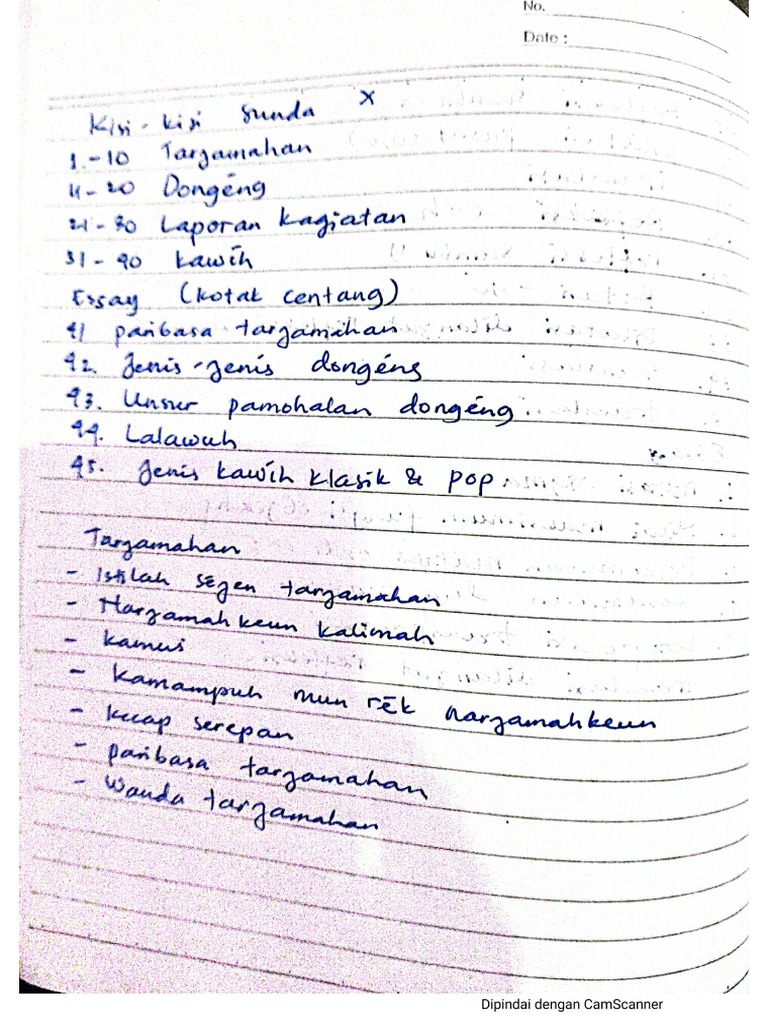 No.
Date :
Kisi-kisi Sunda X
1.-10 Tarjamahan
11-20 Dongéng
21-30 Laporan kagiatan
31-40 Kawih
Essay (kotak centang)
41 paribasa tarjamahan
42. Jenis-jenis dongéng
43. Unsur pamohalan dongéng.
44. Lalawuh
45. Jenis kawih klasik & pop.
Tarjamahan
- Istilah séjén tarjamahan
- Narjamahkeun kalimah
- kamus
- Kamampuh mun rék narjamahkeun
- kecap serepan
- paribasa tarjamahan
- Wanda tarjamahan
Dipindai dengan CamScanner